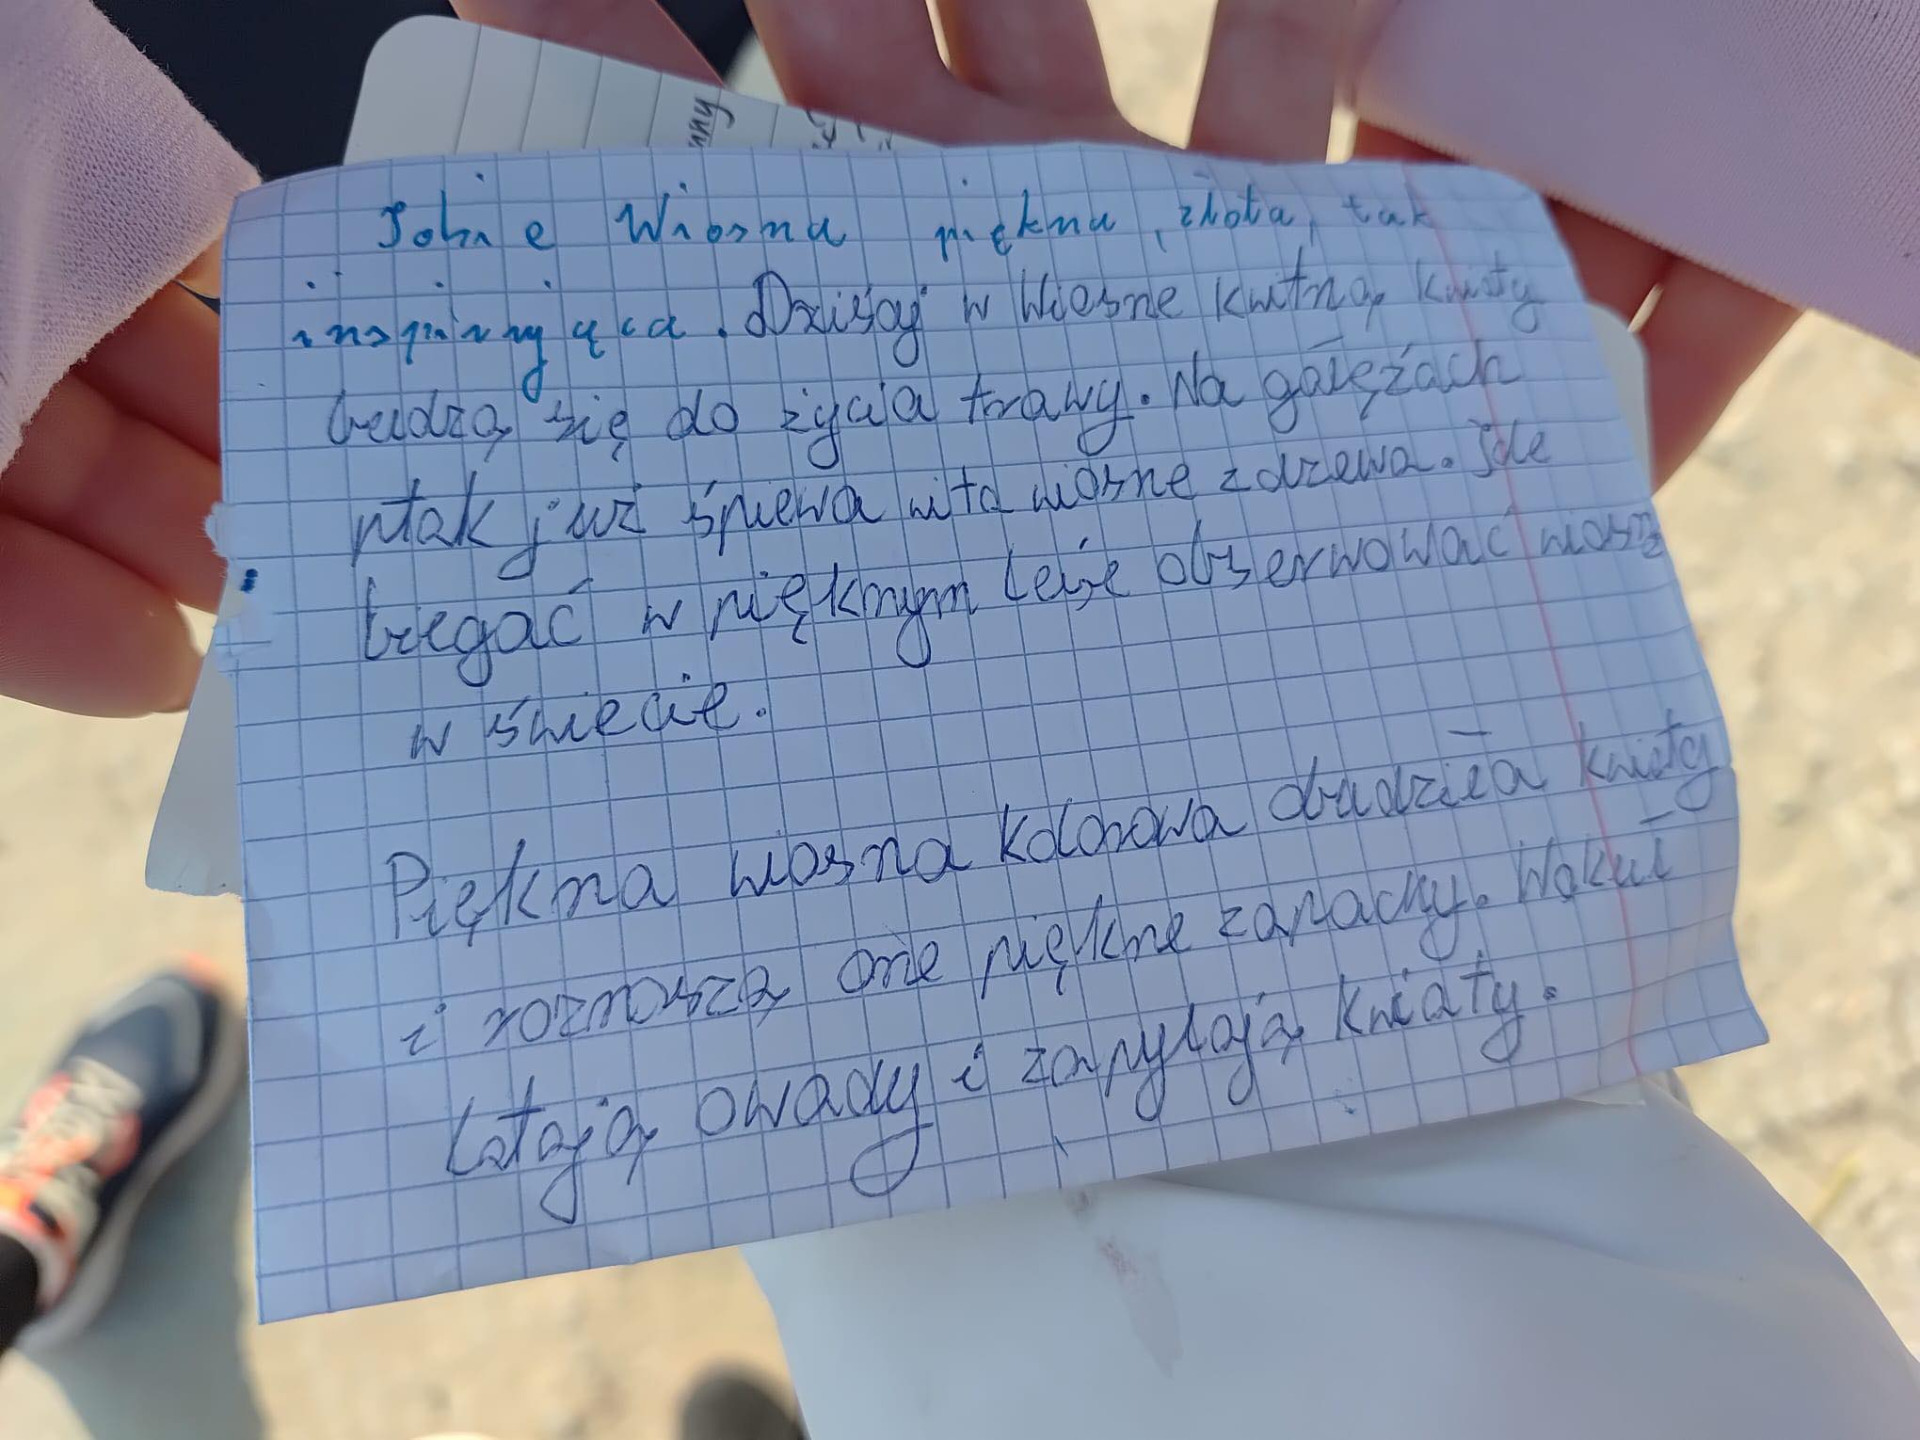 nny
Johie Wiosna piękna, złota, tak
inspirująca. Dzisaj w Wiosne kwitną kwity
budzą się do życia trawy. Na gałęźach
ptak już śpiewa wita wiosne z drzewa. Ide
biegać w pięknym lesie obserwować wiosnę
w świecie.
Piękna wiosna kolorowa obudziła kwiaty
i roznoszą one piękne zapachy. Wokuł
latają owady i zapylają kwiaty.